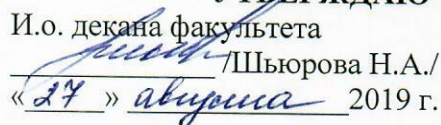 УТВЕРЖДАЮ
И.о. декана факультета
/Шьюрова Н.А./
«27» августа 2019 г.